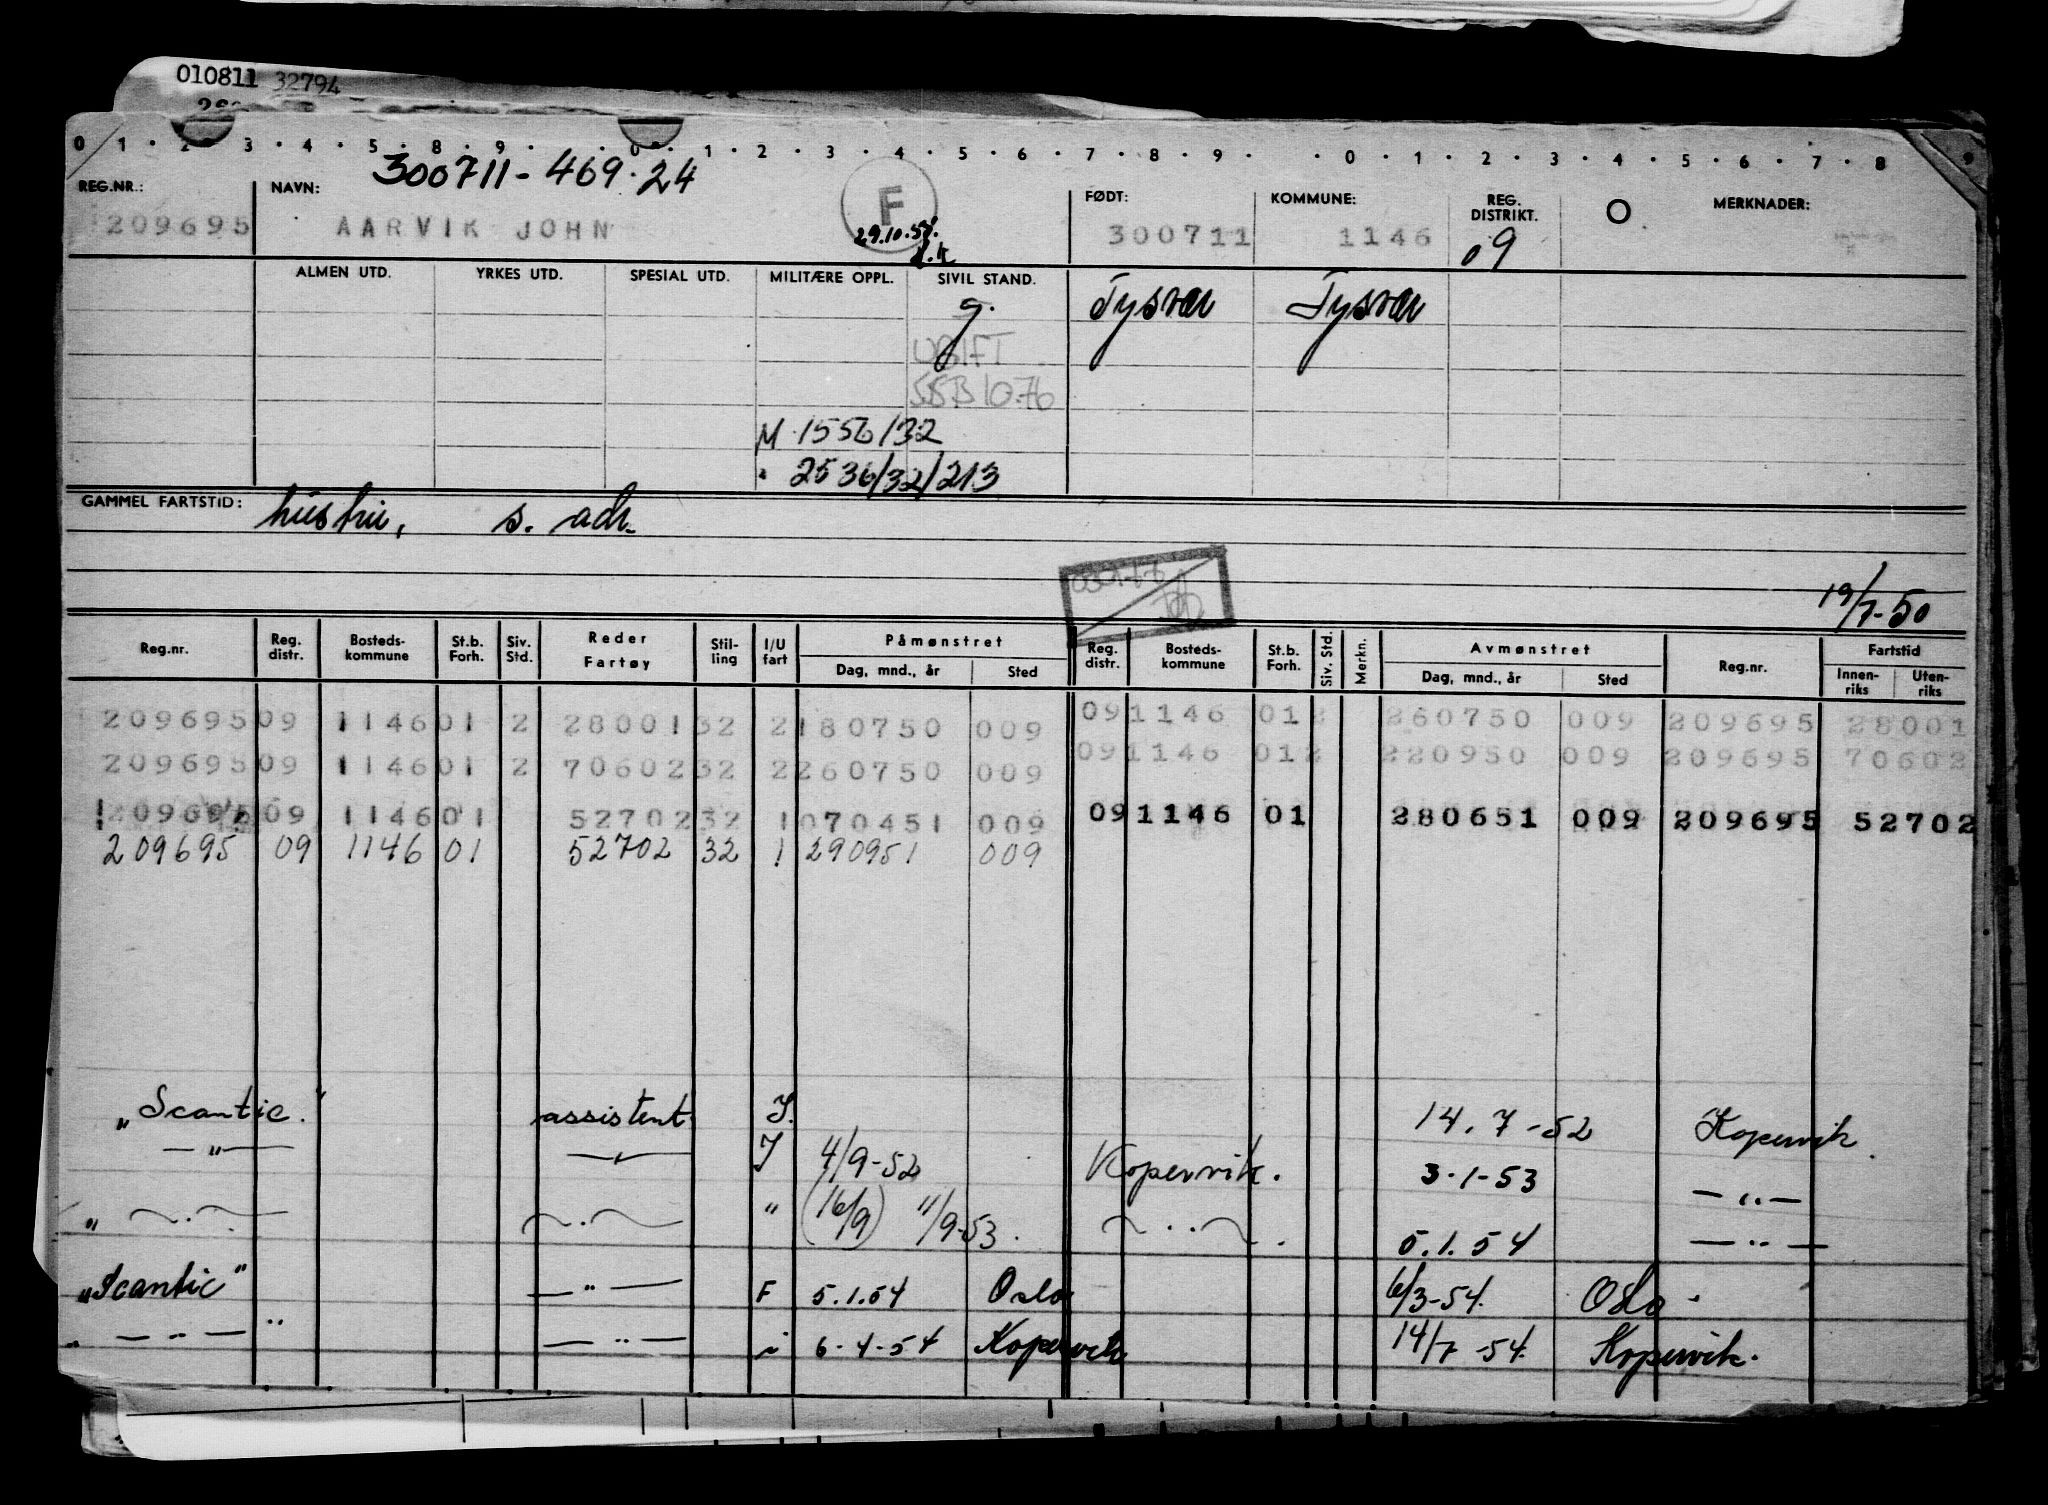 010811 32794
0 1 2 3 4 5 8 9 0 1 2 3 4 5 6 7 8 9 0 1 2 3 4 5 6 7 8 9
300711-469.24
REG.NR.: NAVN: F FØDT: KOMMUNE: REG. DISTRIKT. O MERKNADER:
209695 AARVIK JOHN 29.10.54. 300711 1146 09
ALMEN UTD. YRKES UTD. SPESIAL UTD. MILITÆRE OPPL. SIVIL STAND.
g. Tysvær Tysvær
UGIFT
SSB 10.76
M 1556/32
" 2536/32/213
GAMMEL FARTSTID: hustru, s. adr.
19/7-50
Reg.nr. Reg. distr. Bosteds-kommune St.b. Forh. Siv. Std. Reder Fartøy Stil-ling I/U fart Påmønstret Dag, mnd., år Sted Reg. distr. Bosteds-kommune St.b. Forh. Siv. Std. Merkn. Avmønstret Dag, mnd., år Sted Reg.nr. Fartstid Innen-riks Uten-riks
209695 09 1146 01 2 28001 32 2 180750 009 09 1146 01 2 260750 009 209695 28001
209695 09 1146 01 2 70602 32 2 260750 009 09 1146 01 2 220950 009 209695 70602
209695 09 1146 01 52702 32 1 070451 009 09 1146 01 280651 009 209695 52702
209695 09 1146 01 52702 32 1 290951 009
"Scantic." assistent. I. 14.7-52 Kopervik.
—"— —"— I 4/9-52 Kopervik. 3.1-53 —"—
" —"— —"— " (16/9) 11/9-53. —"— 5.1.54 —"—
"Scantic" —"— F 5.1.54 Oslo 6/3-54. Oslo.
" —"— " —"— i 6-4-54 Kopervik 14/7-54. Kopervik.